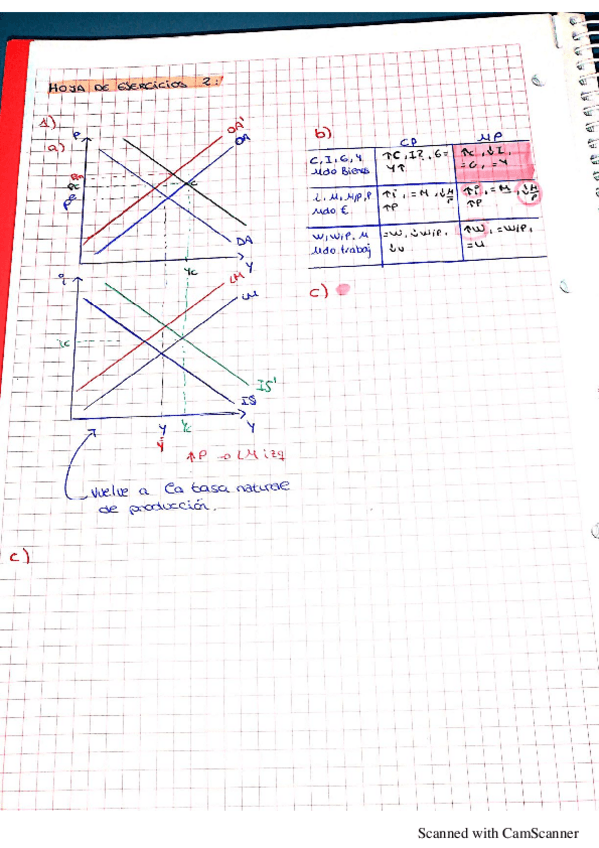 HOJA DE EJERCICIOS 2:
1)
a)
P
OA'
OA
Pc
P
DA
Yc
Y
i
LM
LM
ic
IS'
IS
Y
Yc
Y
Y
↑P → LM izq
Vuelve a la tasa natural
de producción.
b)
CP
MP
C, I, G, Y
Mdo Bienes
↑C, I?, G=
Y↑
↑C, ↓I,
=G, =Y
i, M, M/P, P
Mdo €
↑i, =M, ↓M/P
↑P
↑i, =M, ↓M/P
↑P
W, W/P, u
Mdo trabaj
=W, ↓W/P,
↓u
↑W, =W/P,
=u
c)
c)
Scanned with CamScanner